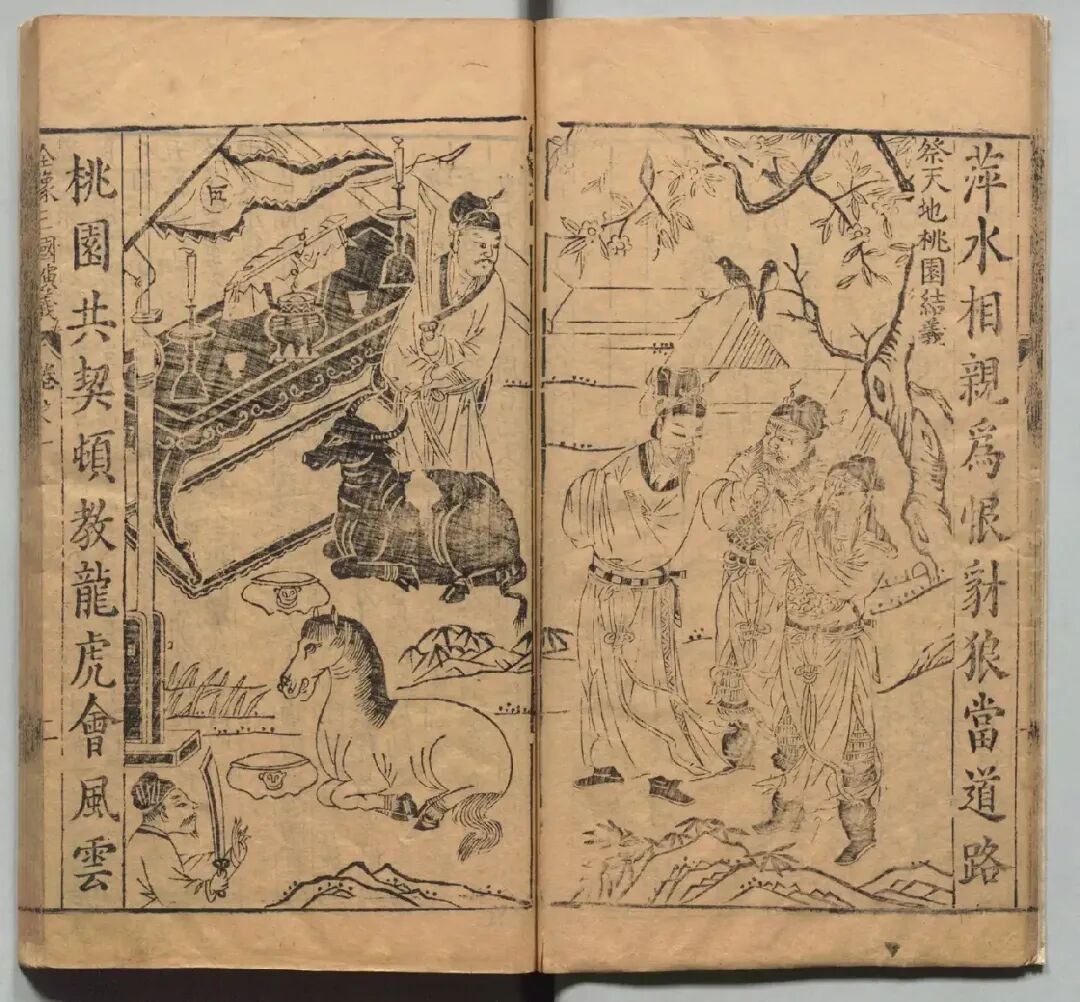 萍水相親爲恨豺狼當道路
祭天地桃園結義
桃園共契頓教龍虎會風雲
全像三國演義
卷之一